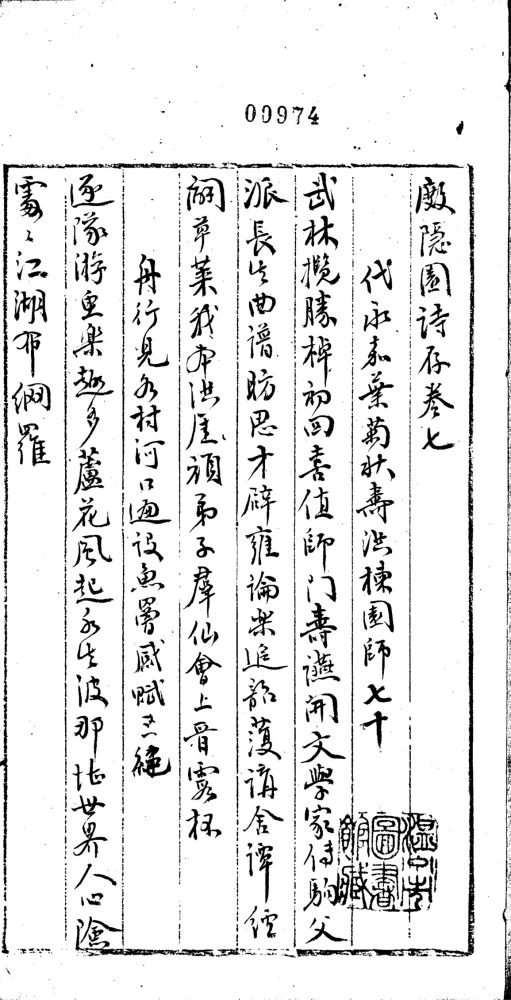 00974
廄隱園詩存卷七
代永嘉葉菊狀壽洪棟園師七十
武林攬勝棹初回喜值師門壽讌開文學家傳駒父
派長生曲譜昉思才辟雍論樂追韶頀講舍譚經
闢草萊我本洪厓頑弟子羣仙會上晉霞杯
舟行見各村河口遍設魚罾感賦
逐隊游魚樂趣多蘆花風起水生波那堪世界人心險
處處江湖布網羅
溫州市圖書館藏